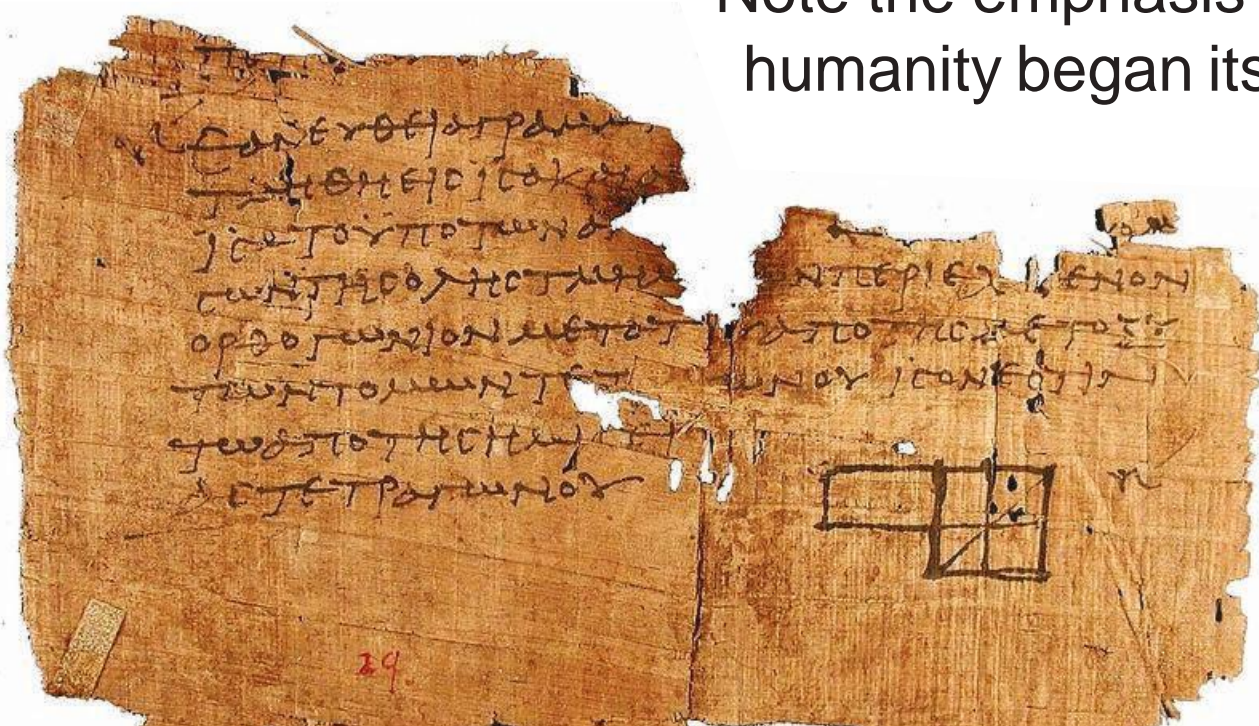 Note the emphasis
humanity began its
ϵΑΝΕΥΘΕΙΑΓΡΑΜΜ
ΤΜΗΘΗΕΙϹΙϹΑΚΑΙΑ
ΙϹΑΤΟΥΠΟΤΩΝΑ
ϹΩΝΤΗϹΟΛΗϹΤΜΗΜ ΩΝΠΕΡΙΕΧ ΜΕΝΟΝ
ΟΡΘΟΓΩΝΙΟΝΜΕΤΟΤ ΑΠΟΤΗϹΜΕΤΟΞΥ
ΤΩΝΤΟΜΩΝΤΕΤ ΩΝΟΥΙϹΟΝΕϹΤΙΝ
ΤΩΑΠΟΤΗϹΗΜΙ
ΑϹΤΕΤΡΑΓΩΝΟΥ
29